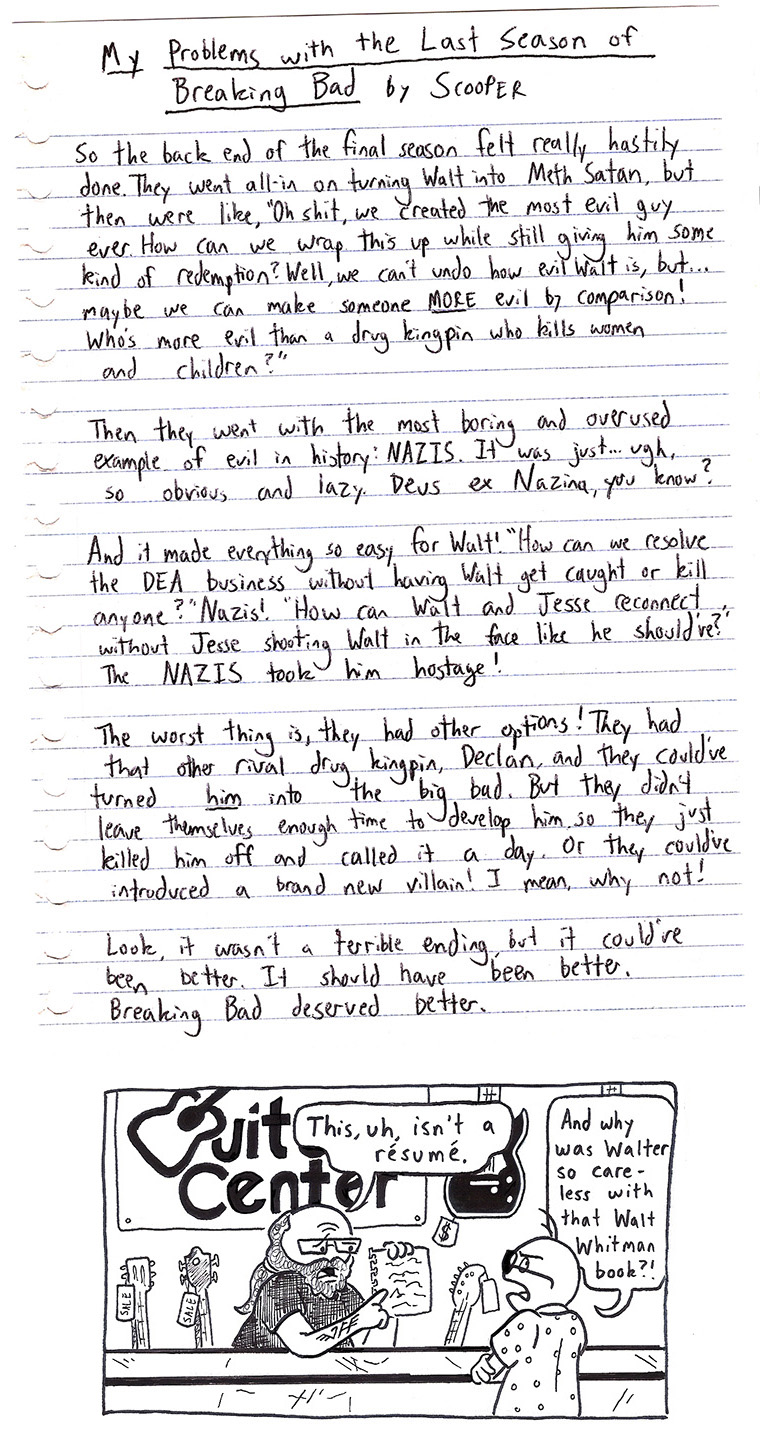 My Problems with the Last Season of
Breaking Bad by SCOOPER
So the back end of the final season felt really hastily
done. They went all-in on turning Walt into Meth Satan, but
then were like, "Oh shit, we created the most evil guy
ever. How can we wrap this up while still giving him some
kind of redemption? Well, we can't undo how evil Walt is, but...
maybe we can make someone MORE evil by comparison!
Who's more evil than a drug kingpin who kills women
and children?"
Then they went with the most boring and overused
example of evil in history: NAZIS. It was just... ugh,
so obvious and lazy. Deus ex Nazina, you know?
And it made everything so easy for Walt! "How can we resolve
the DEA business without having Walt get caught or kill
anyone?" Nazis! "How can Walt and Jesse reconnect
without Jesse shooting Walt in the face like he should've?"
The NAZIS took him hostage!
The worst thing is, they had other options! They had
that other rival drug kingpin, Declan, and they could've
turned him into the big bad. But they didn't
leave themselves enough time to develop him so they just
killed him off and called it a day. Or they could've
introduced a brand new villain! I mean, why not!
Look, it wasn't a terrible ending, but it could've
been better. It should have been better.
Breaking Bad deserved better.
Guitar
Center
This, uh, isn't a
résumé.
And why
was Walter
so care-
less with
that Walt
Whitman
book?!
$
SALE
SALE